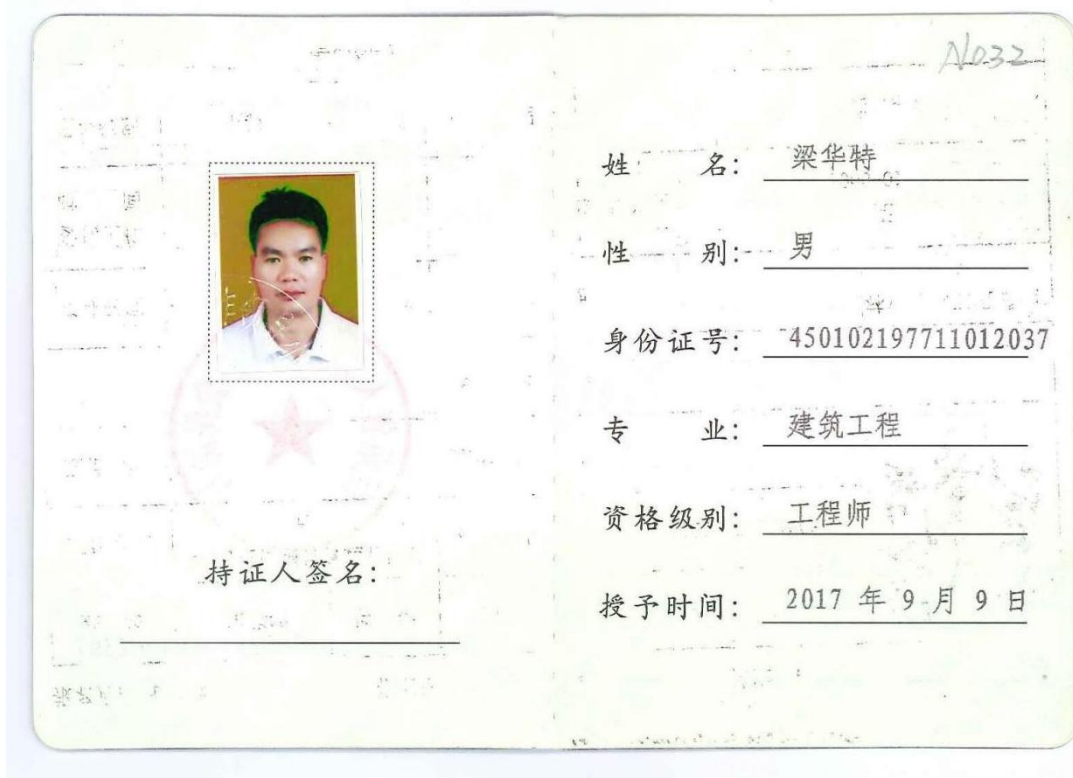 N032
姓 名: 梁华特
性 别: 男
身份证号: 450102197711012037
专 业: 建筑工程
资格级别: 工程师
授予时间: 2017 年 9 月 9 日
持证人签名: